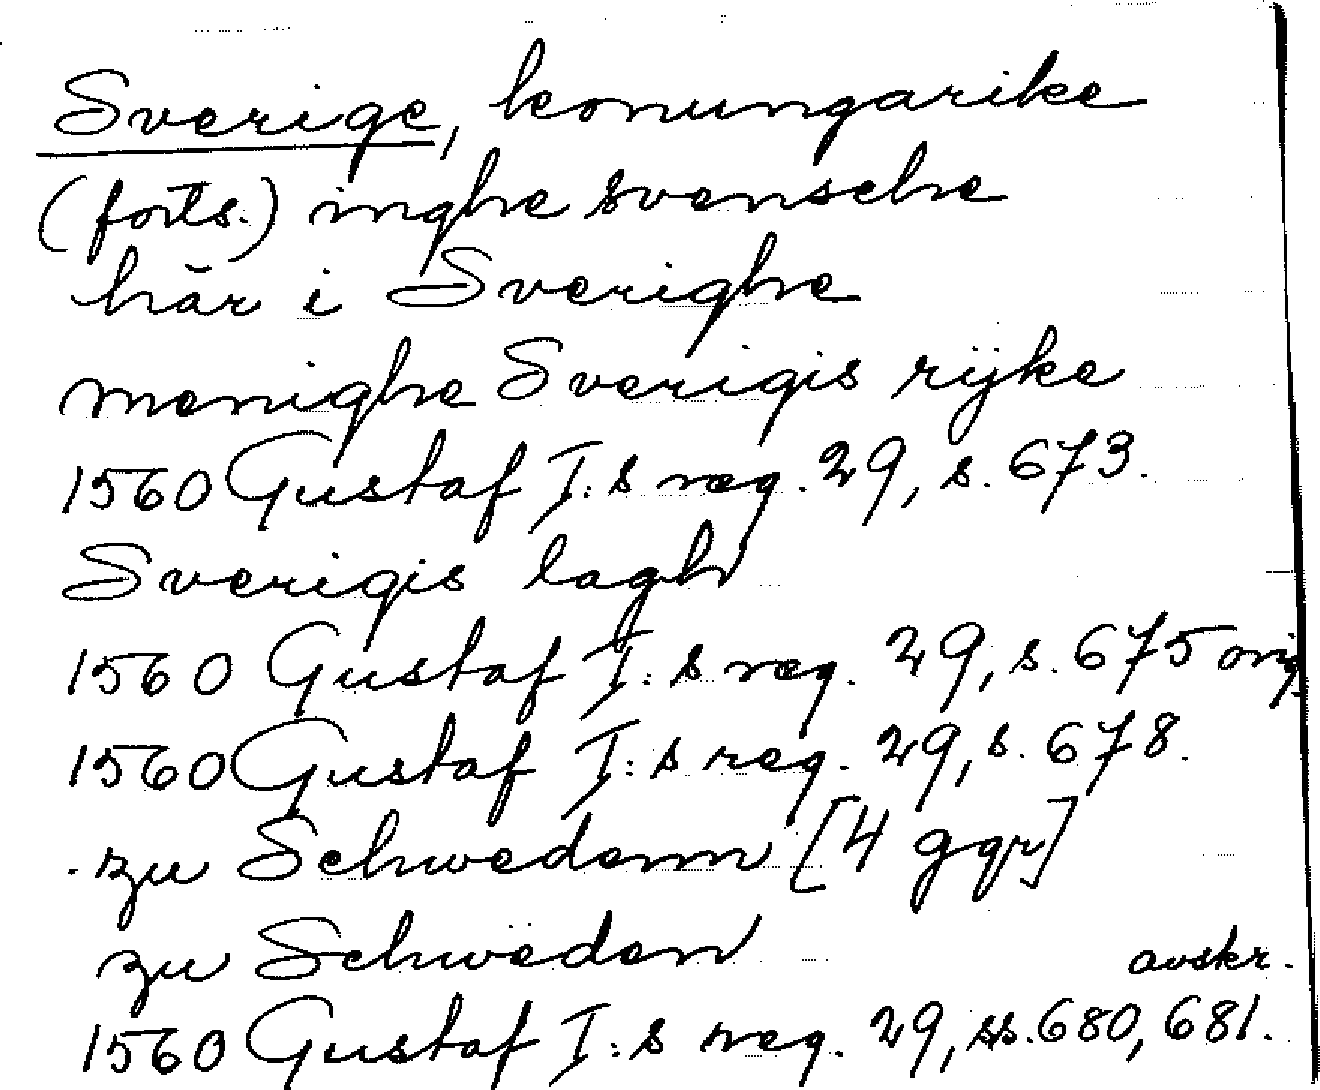 Sverige, konungarike
(forts.) inghe svensche
här i Sverighe
menighe Sverigis rijke
1560 Gustaf I:s reg. 29, s. 673.
Sverigis lagh
1560 Gustaf I:s reg. 29, s. 675 orig
1560 Gustaf I:s reg. 29, s. 678.
zu Schwedenn [4 ggr]
zu Schweden
avskr.
1560 Gustaf I:s reg. 29, ss. 680, 681.